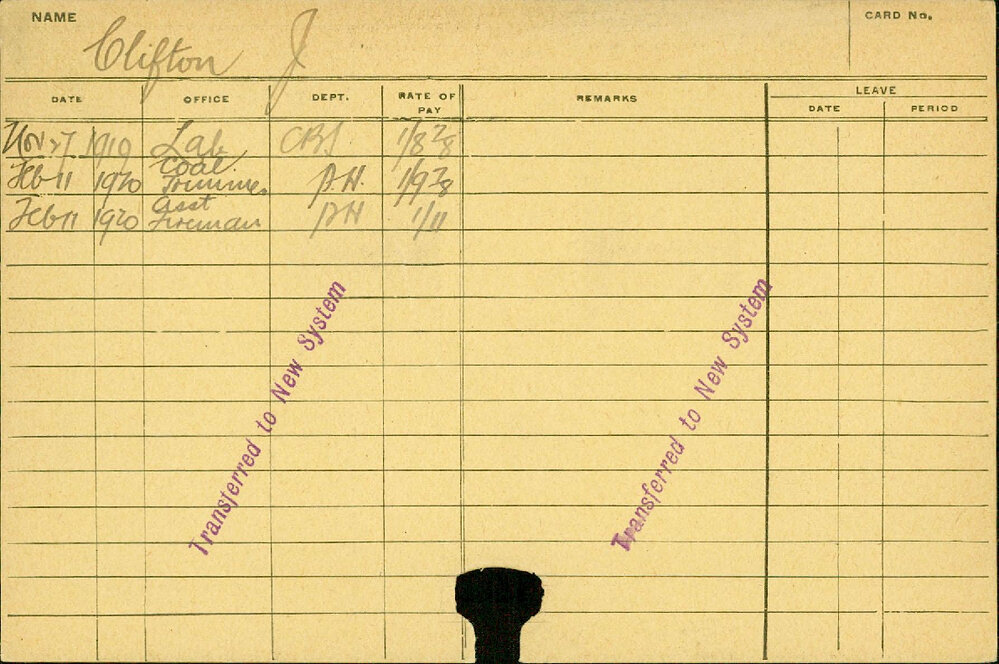 NAME
CARD No.
Clifton J
DATE OFFICE DEPT. RATE OF PAY REMARKS LEAVE
DATE PERIOD
Nov 27 1919 Lab CBS 1/8 7/8
Feb 11 1920 Coal Trimmer P.H. 1/9 7/8
Feb 11 1920 Asst Fireman PH 1/11
Transferred to New System
Transferred to New System